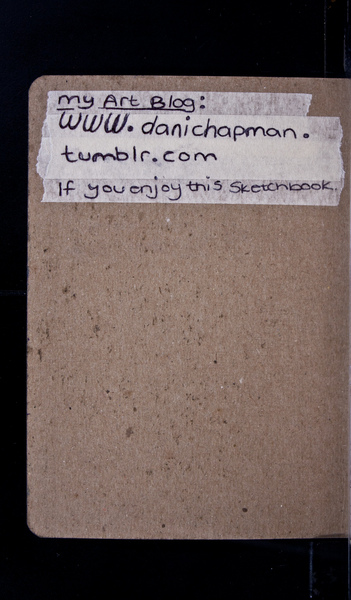 my Art Blog:
www.danichapman.
tumblr.com
If you enjoy this Sketchbook,